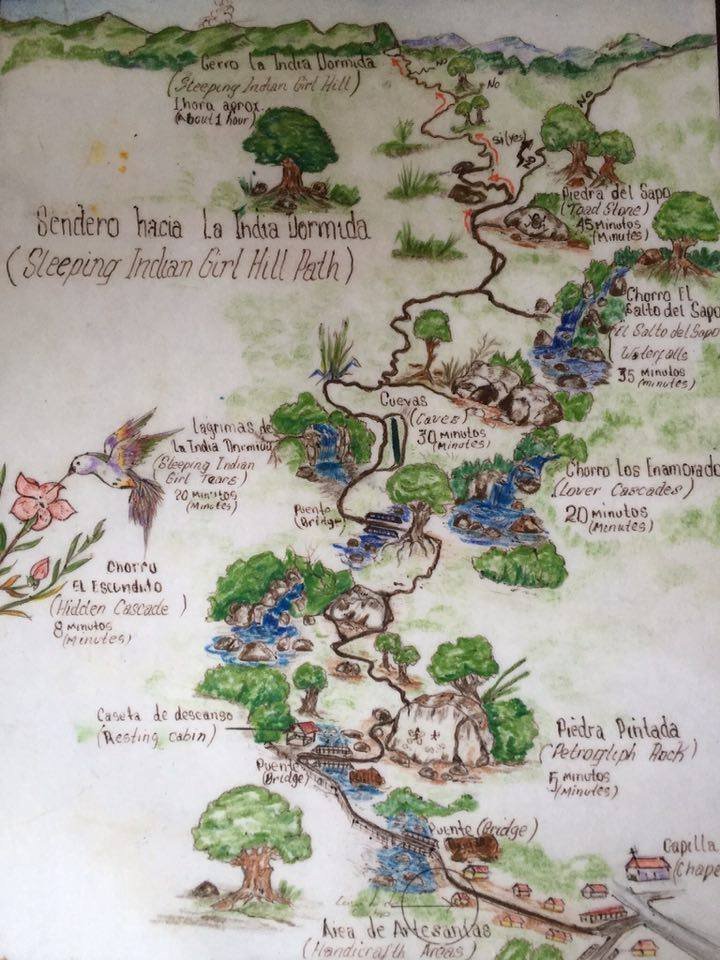 Cerro La India Dormida
(Sleeping Indian Girl Hill)
1 hora aprox.
(About 1 hour)
No
No
No
Si (yes)
Piedra del Sapo
(Toad Stone)
45 Minutos
(Minutes)
Sendero hacia La India Dormida
(Sleeping Indian Girl Hill Path)
Chorro El
Salto del Sapo
El Salto del Sapo
Waterfalls
35 Minutos
(minutes)
Cuevas
(Caves)
30 Minutos
(Minutes)
Lagrimas de
La India Dormida
(Sleeping Indian
Girl Tears)
20 Minutos
(Minutes)
Puente
(Bridge)
Chorro Los Enamorado
(Lover Cascades)
20 minutos
(Minutes)
Chorro
El Escundito
(Hidden Cascade)
8 minutos
(Minutes)
Caseta de descanso
(Resting Cabin)
Piedra Pintada
(Petrogliph Rock)
5 minutos
(Minutes)
Puente
(Bridge)
Puente (Bridge)
Capilla
(Chape
Area de Artesanias
(Handicrafth Areas)